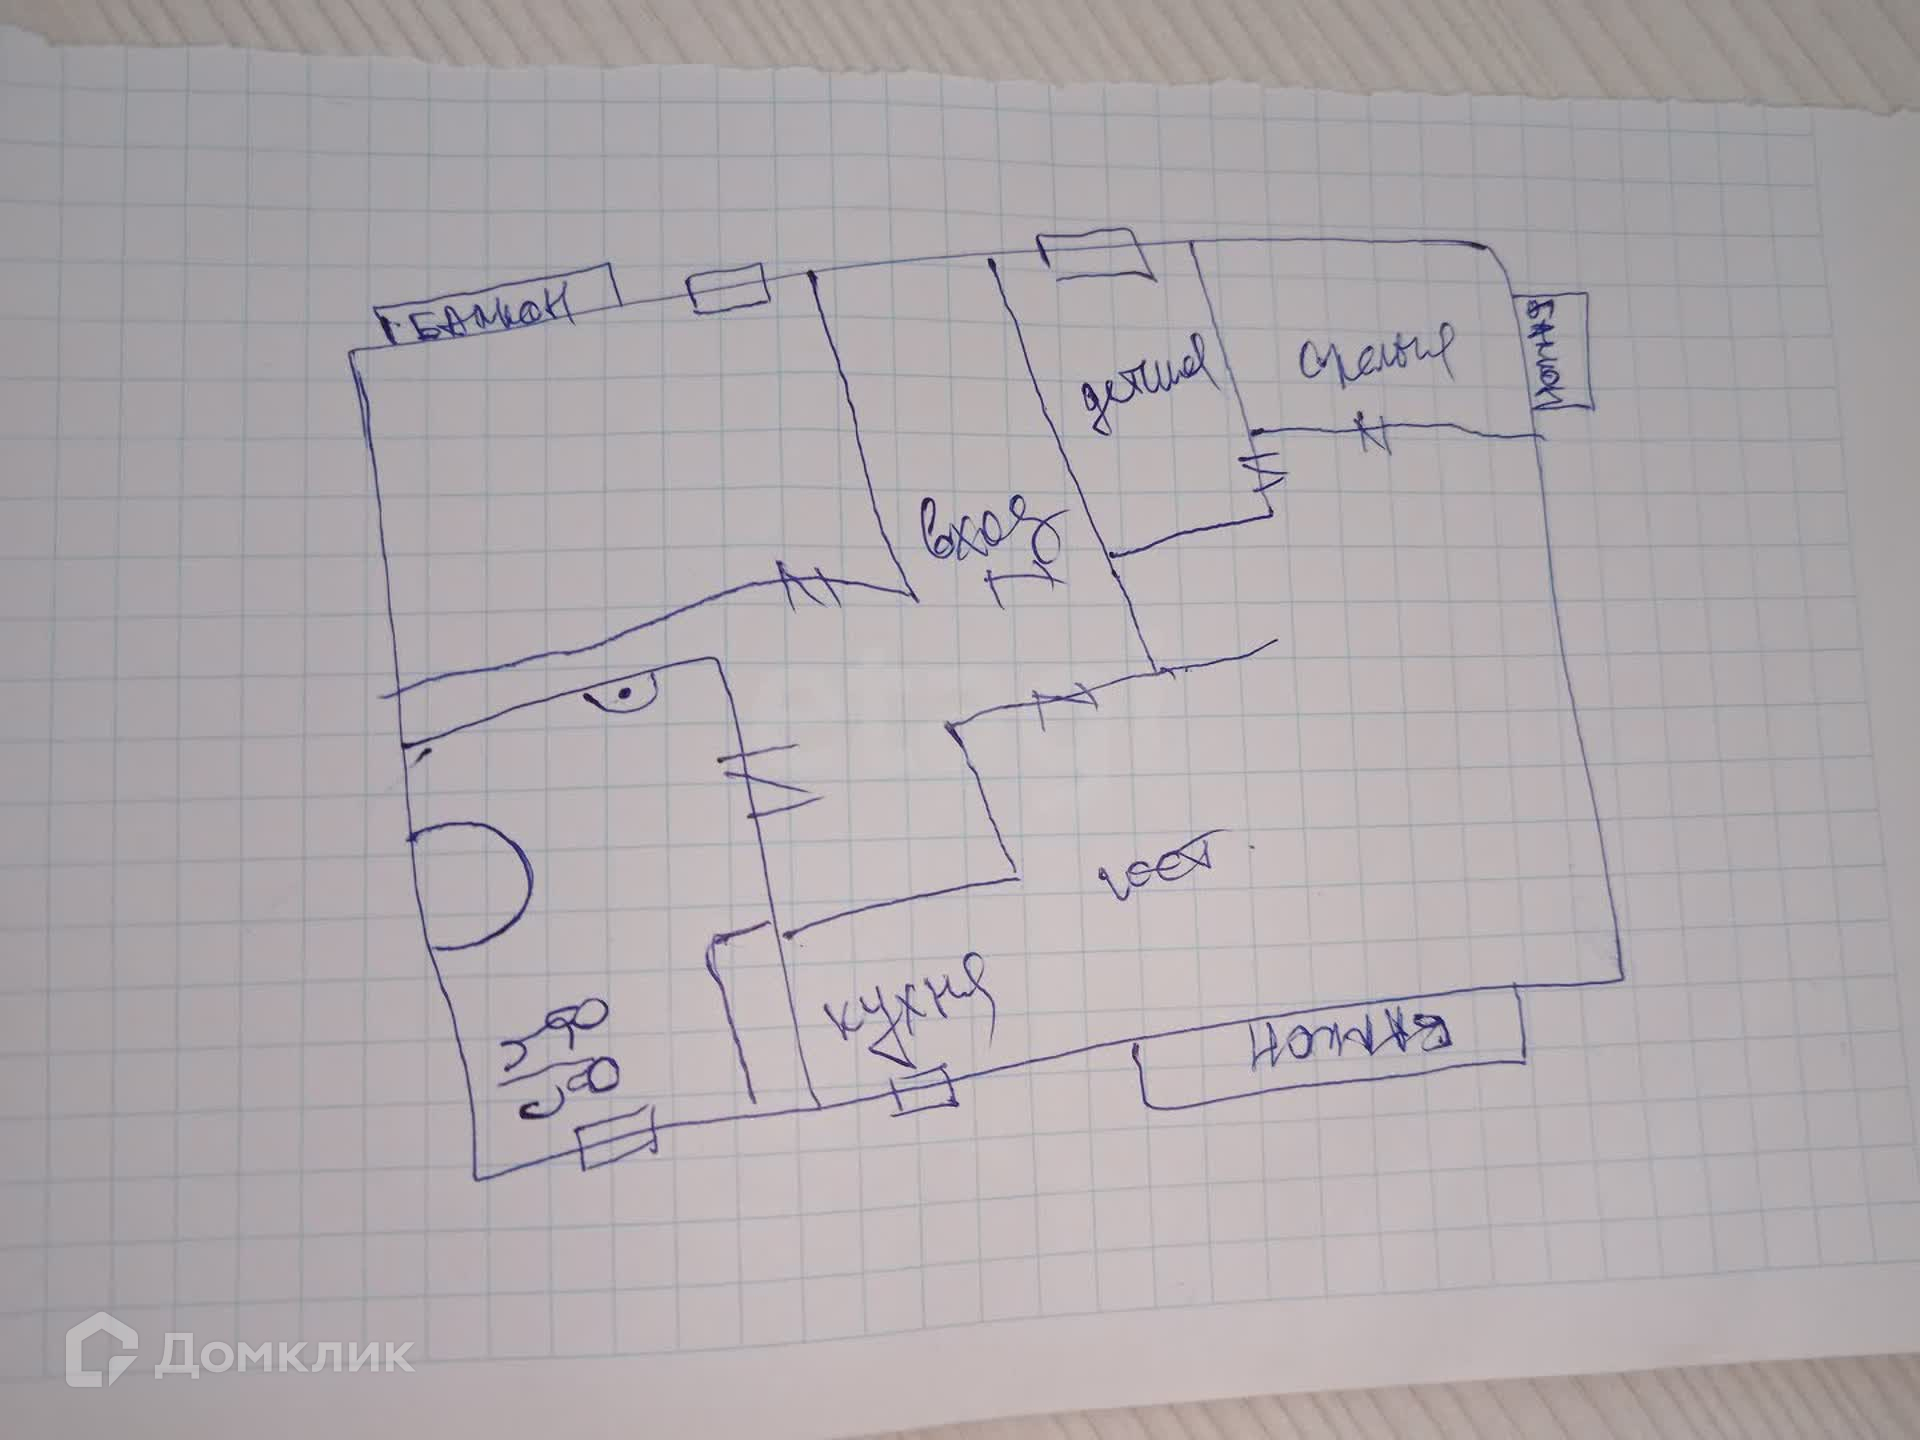 БАЛКОН
БАЛКОН
детская
спальня
вход
гост.
кухня
БАЛКОН
Домклик